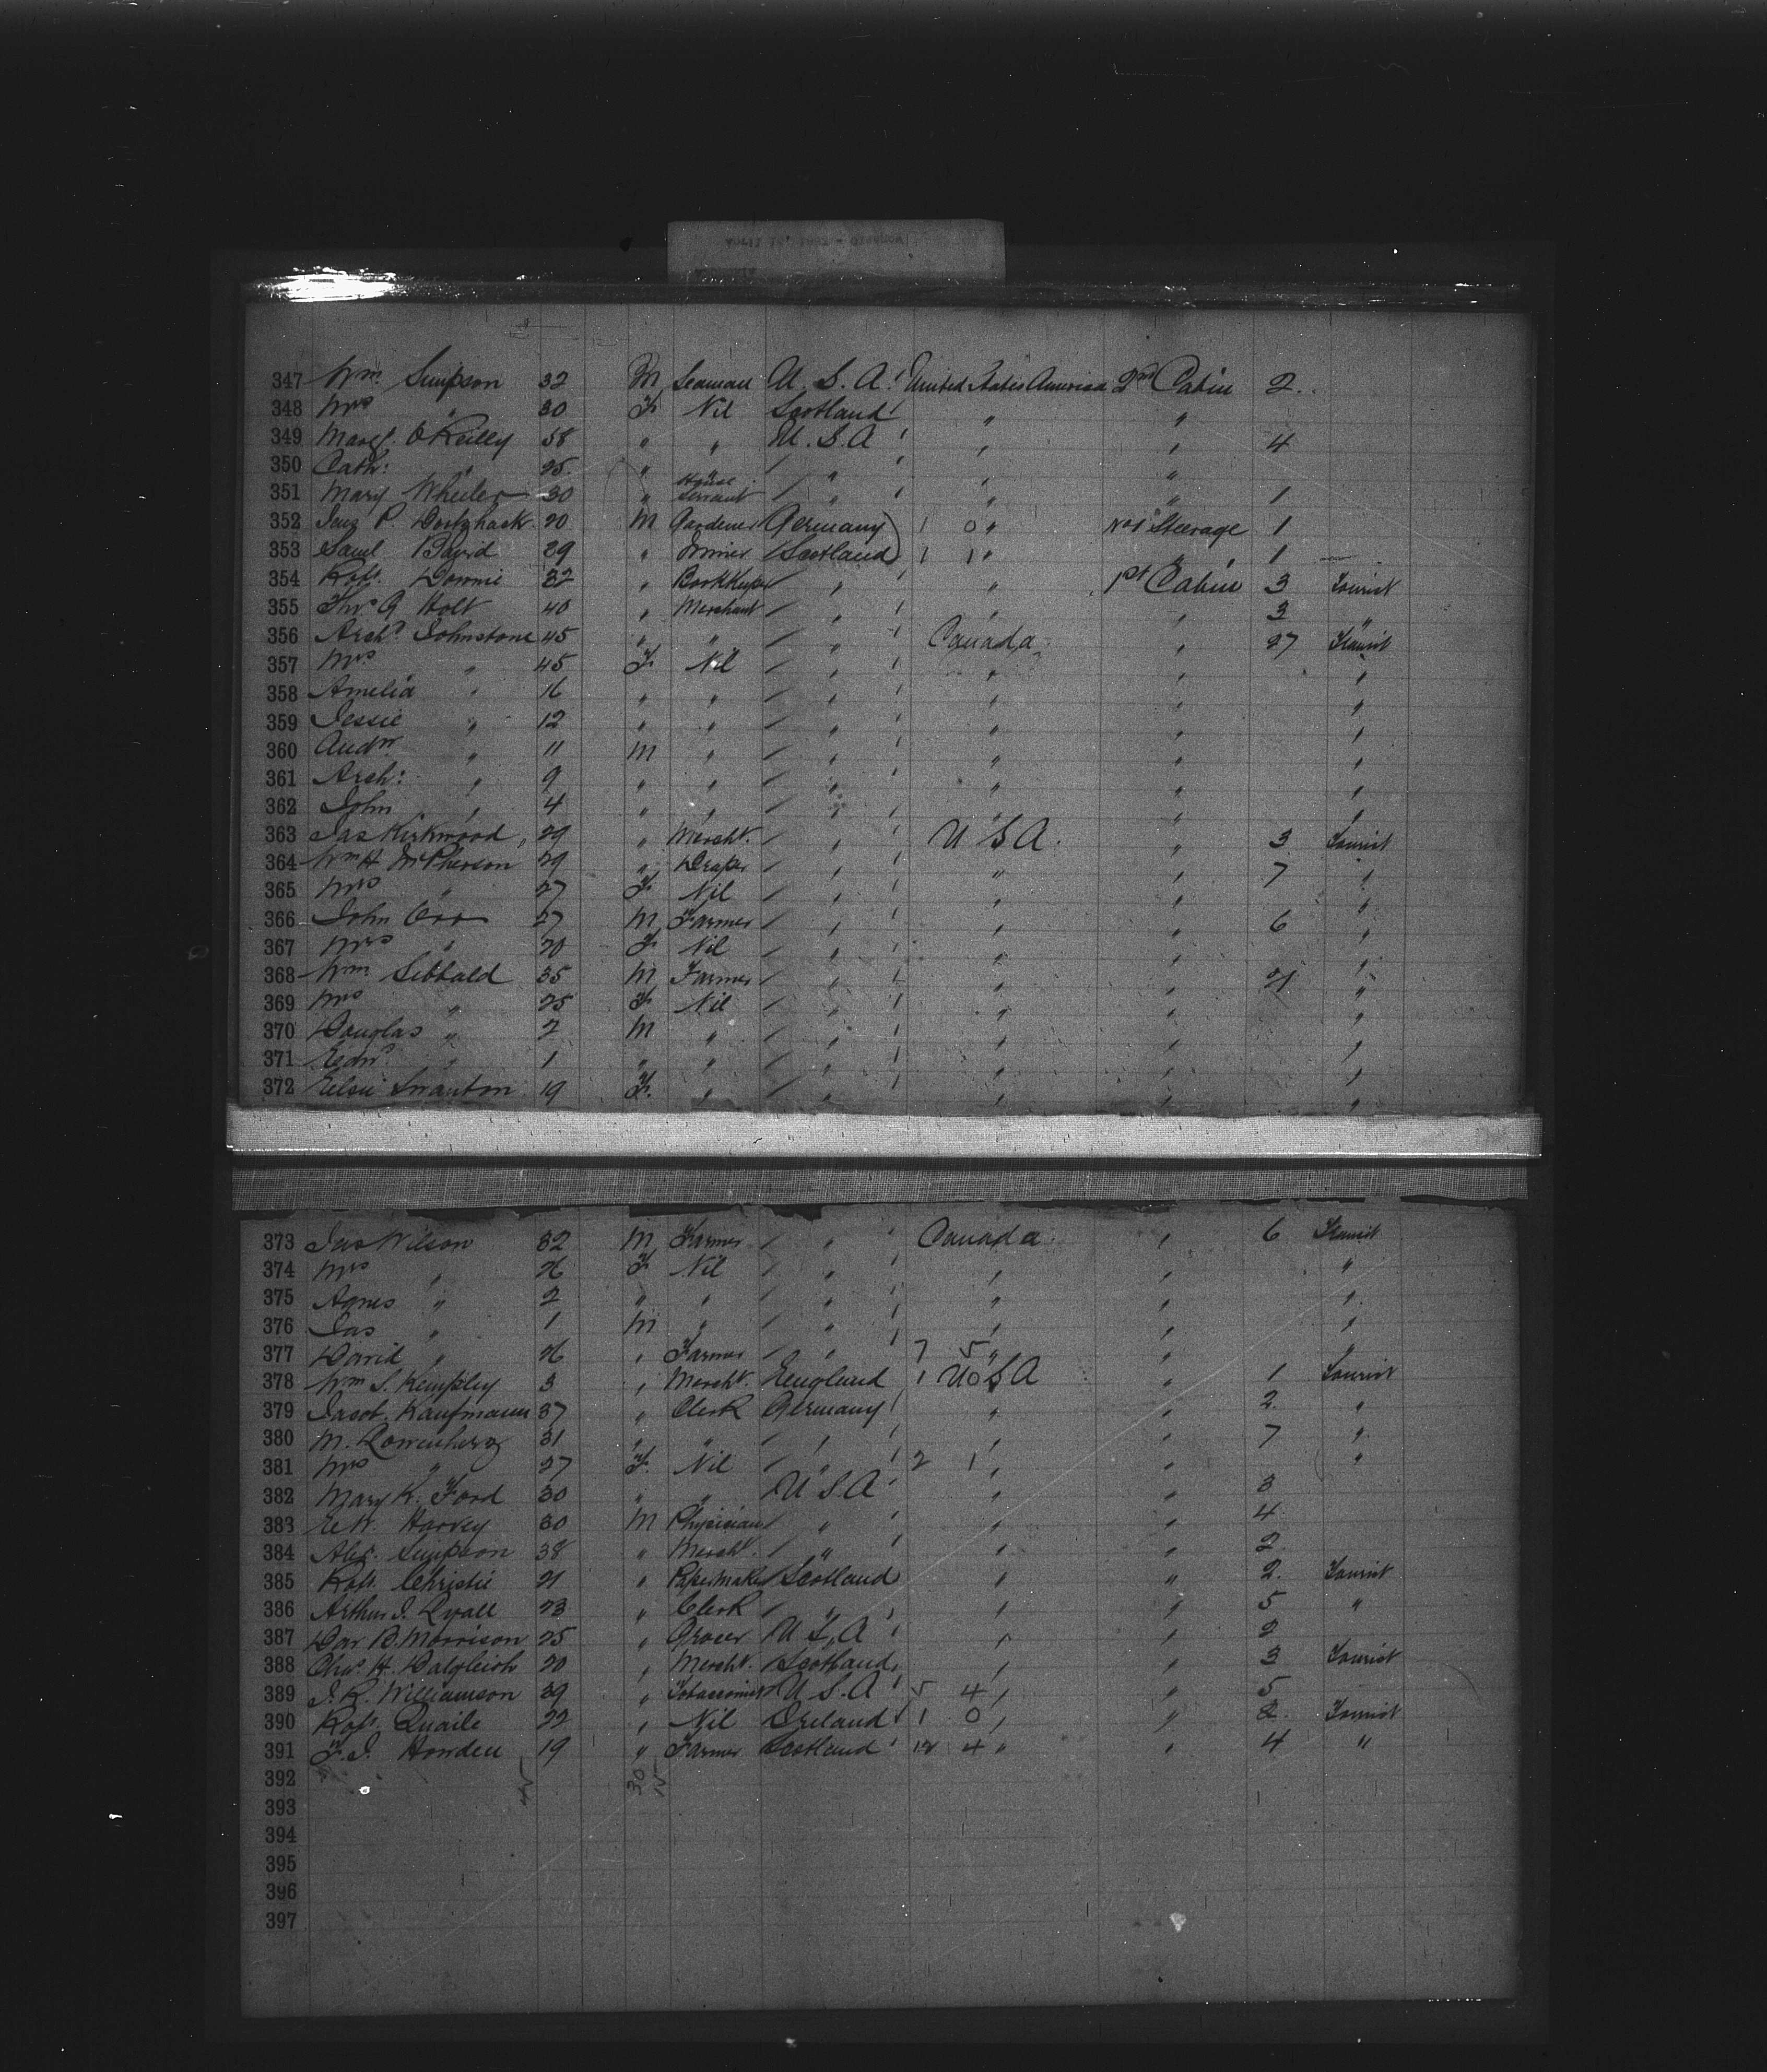 347 Wm. Simpson 32 M Seaman U.S.A. United States America 2nd Cabin 2
348 Mrs " 30 F. Nil Scotland " "
349 Margt. O'Reilly 58 " " U.S.A " " 4
350 Cath: " 25 " " " " "
351 Mary Wheeler 30 " House Servant " " " 1
352 P. 20 M Gardener Germany 1 0 " No 1 Steerage 1
353 Saml David 29 " Scotland 1 1 " " 1
354 Robt. Downie 32 " Bookkeeper " " 1st Cabin 3 Tourist
355 Thos. G. Holt 40 " Merchant " " " 3 "
356 Archd. Johnstone 45 " " " Canada " 27 Transit
357 Mrs " 45 F. Nil " " " "
358 Amelia " 16 " " " " " "
359 Jessie " 12 " " " " " "
360 Andw " 11 M " " " " "
361 Arch: " 9 " " " " " "
362 John " 4 " " " " " "
363 Jas Kirkwood 29 " Mercht. " U S A. " 3 Tourist
364 Wm H. McPherson 29 " Draper " " " 7 "
365 Mrs " 27 F. Nil " " " "
366 John Orr 27 M Farmer " " " 6 "
367 Mrs " 20 F. Nil " " " "
368 Wm. Sibbald 35 M Farmer " " " 21 "
369 Mrs " 25 F. Nil " " " "
370 Douglas " 2 M " " " " "
371 Edwd. " 1 " " " " " "
372 Elsie Swanton 19 F. " " " " "
373 Jas Wilson 32 M Farmer " Canada " 6 Transit
374 Mrs " 26 F. Nil " " " "
375 Agnes " 2 " " " " " "
376 Jas " 1 M " " " " "
377 David " 26 " Farmer " 7 5 " " "
378 Wm S. Kempsley 3 " Mercht. England 1 0 U S A " 1 Tourist
379 Jacob Kaufmann 37 " Clerk Germany " " 2 "
380 M. Lowenherz 31 " " " " " 7 "
381 Mrs " 27 F. Nil " 2 1 " " "
382 Mary K. Ford 30 " " U S A " " 3
383 E. W. Harvey 30 M Physician " " " 4
384 Alex. Simpson 38 " Mercht. " " " 2
385 Robt. Christie 21 " Papermaker Scotland " " 2 Tourist
386 Arthur J. Lyall 23 " Clerk " " " 5 "
387 B. Morrison 25 " Grocer U S A " " 2
388 Chas. H. Dalgleish 20 " Mercht. Scotland " " 3 Tourist
389 J. R. Williamson 39 " Tobacconist U S.A 5 4 " " 5
390 Robt. Quaile 22 " Nil Ireland 1 0 " " 2 Tourist
391 F. J. Howden 19 " Farmer Scotland 18 4 " " 4 "
392
393
394
395
396
397